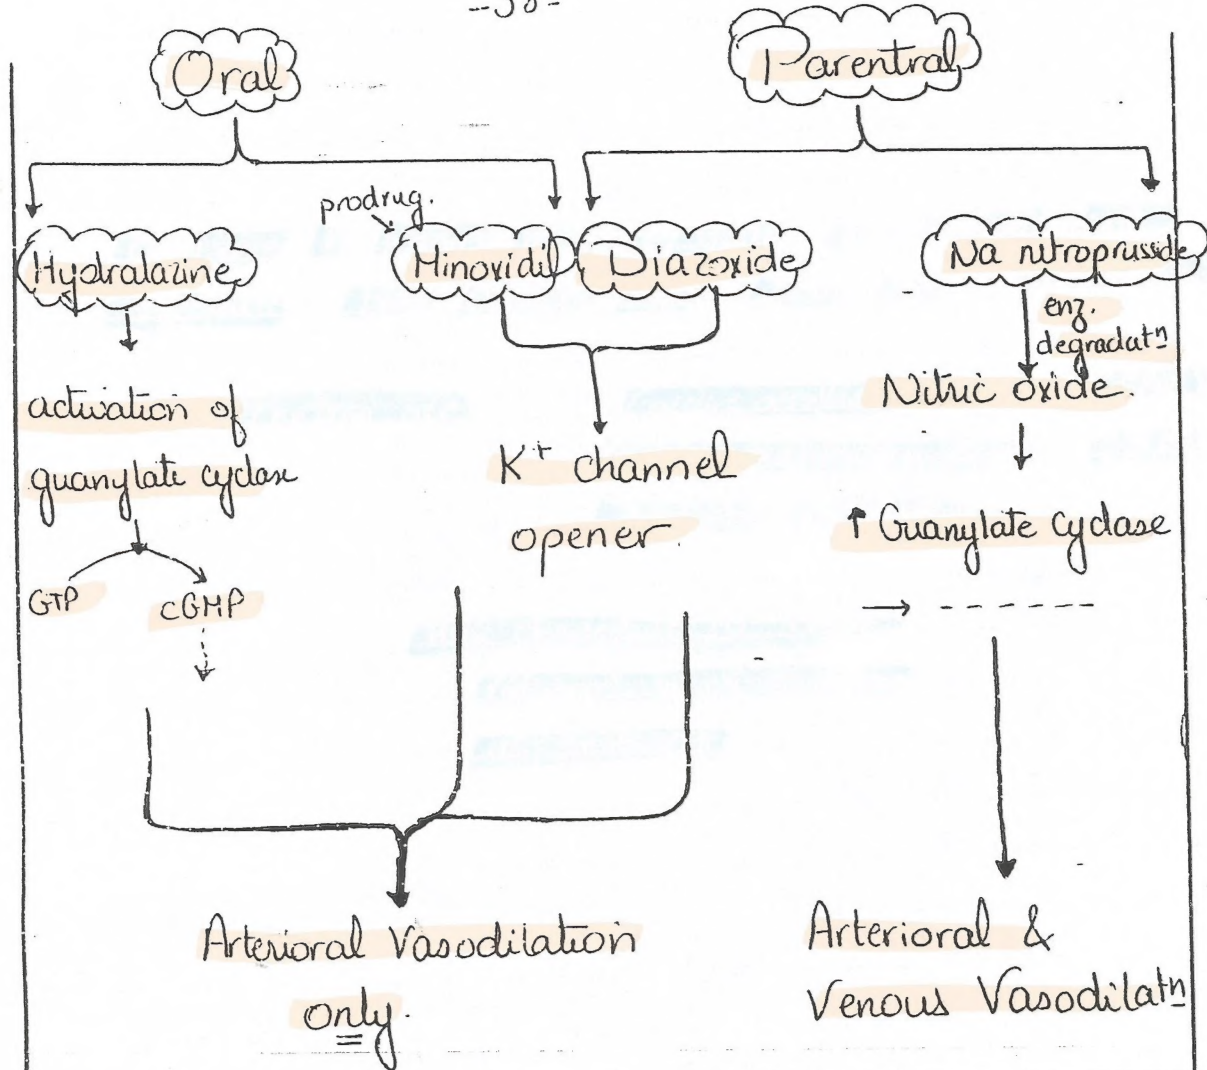 Oral
Parentral
prodrug.
Hydralazine
Minoxidil
Diazoxide
Na nitroprusside
enz.
degradatn
activation of
guanylate cyclase
GTP
cGMP
K+ channel
opener.
Nitric oxide.
↑ Guanylate cyclase
→ ------
Arterioral Vasodilation
only.
Arterioral &
Venous Vasodilatn